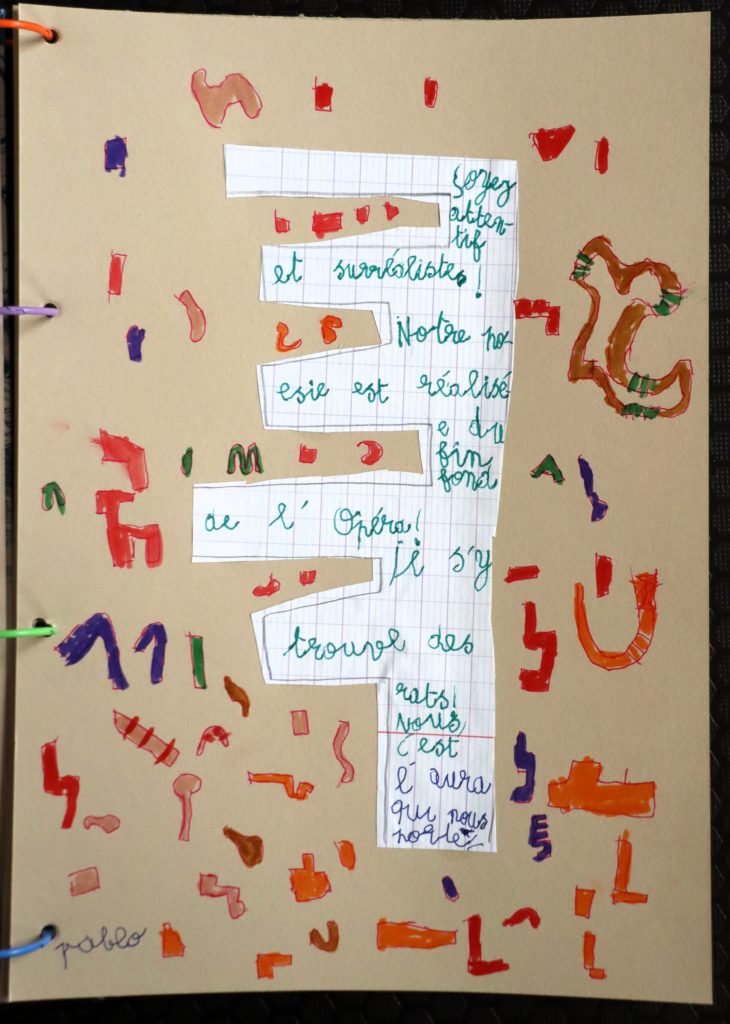 Soyez
atten-
tif
et surréalistes!
Notre po
esie est réalisé
e du
fin
fond
de l' Opéra!
Ji s'y
trouve des
rats!
vous
c'est
l'aura
qui nous
porte!
pablo